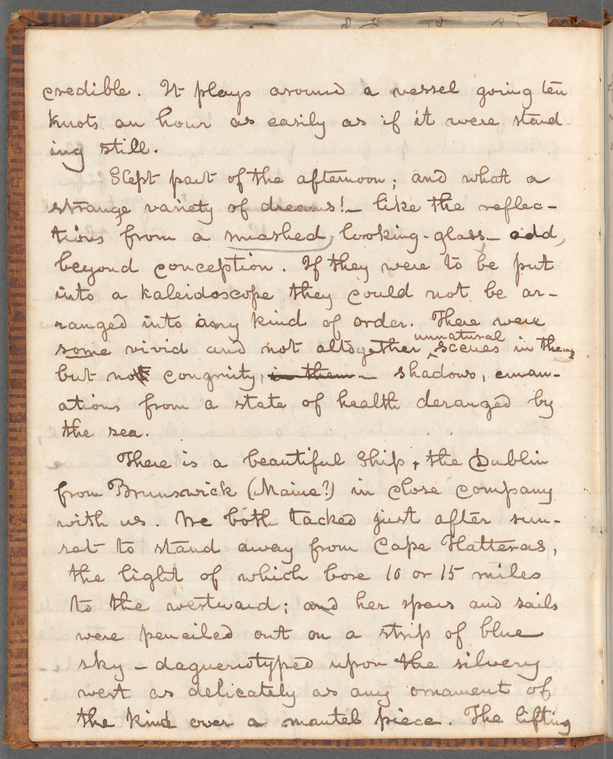 credible. It plays around a vessel going ten
knots an hour as easily as if it were stand-
ing still.
Slept part of the afternoon; and what a
strange variety of dreams! – like the reflec-
tions from a smashed looking-glass, – odd,
beyond conception. If they were to be put
into a kaleidoscope they could not be ar-
ranged into any kind of order. There were
some vivid and not altogether unnatural scenes in them
but not congruity, in them – shadows, eman-
ations from a state of health deranged by
the sea.
There is a beautiful Ship, the Dublin
from Brunswick (Maine?) in close company
with us. We both tacked just after sun-
set to stand away from Cape Hatteras,
the light of which bore 10 or 15 miles
to the westward; and her spars and sails
were penciled out on a strip of blue
sky – daguerreotyped upon the silvery
west as delicately as any ornament of
the kind over a mantel piece. The lifting